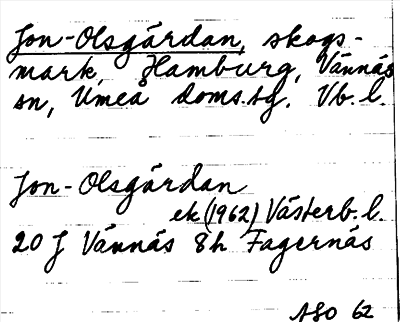 Jon-Olsgårdan, skogs-
mark, Hamburg, Vännäs
sn, Umeå doms.sg. Vb.l.
Jon-Olsgårdan
ek (1962) Västerb.l.
20 J Vännäs 8h Fagernäs
ASO 62